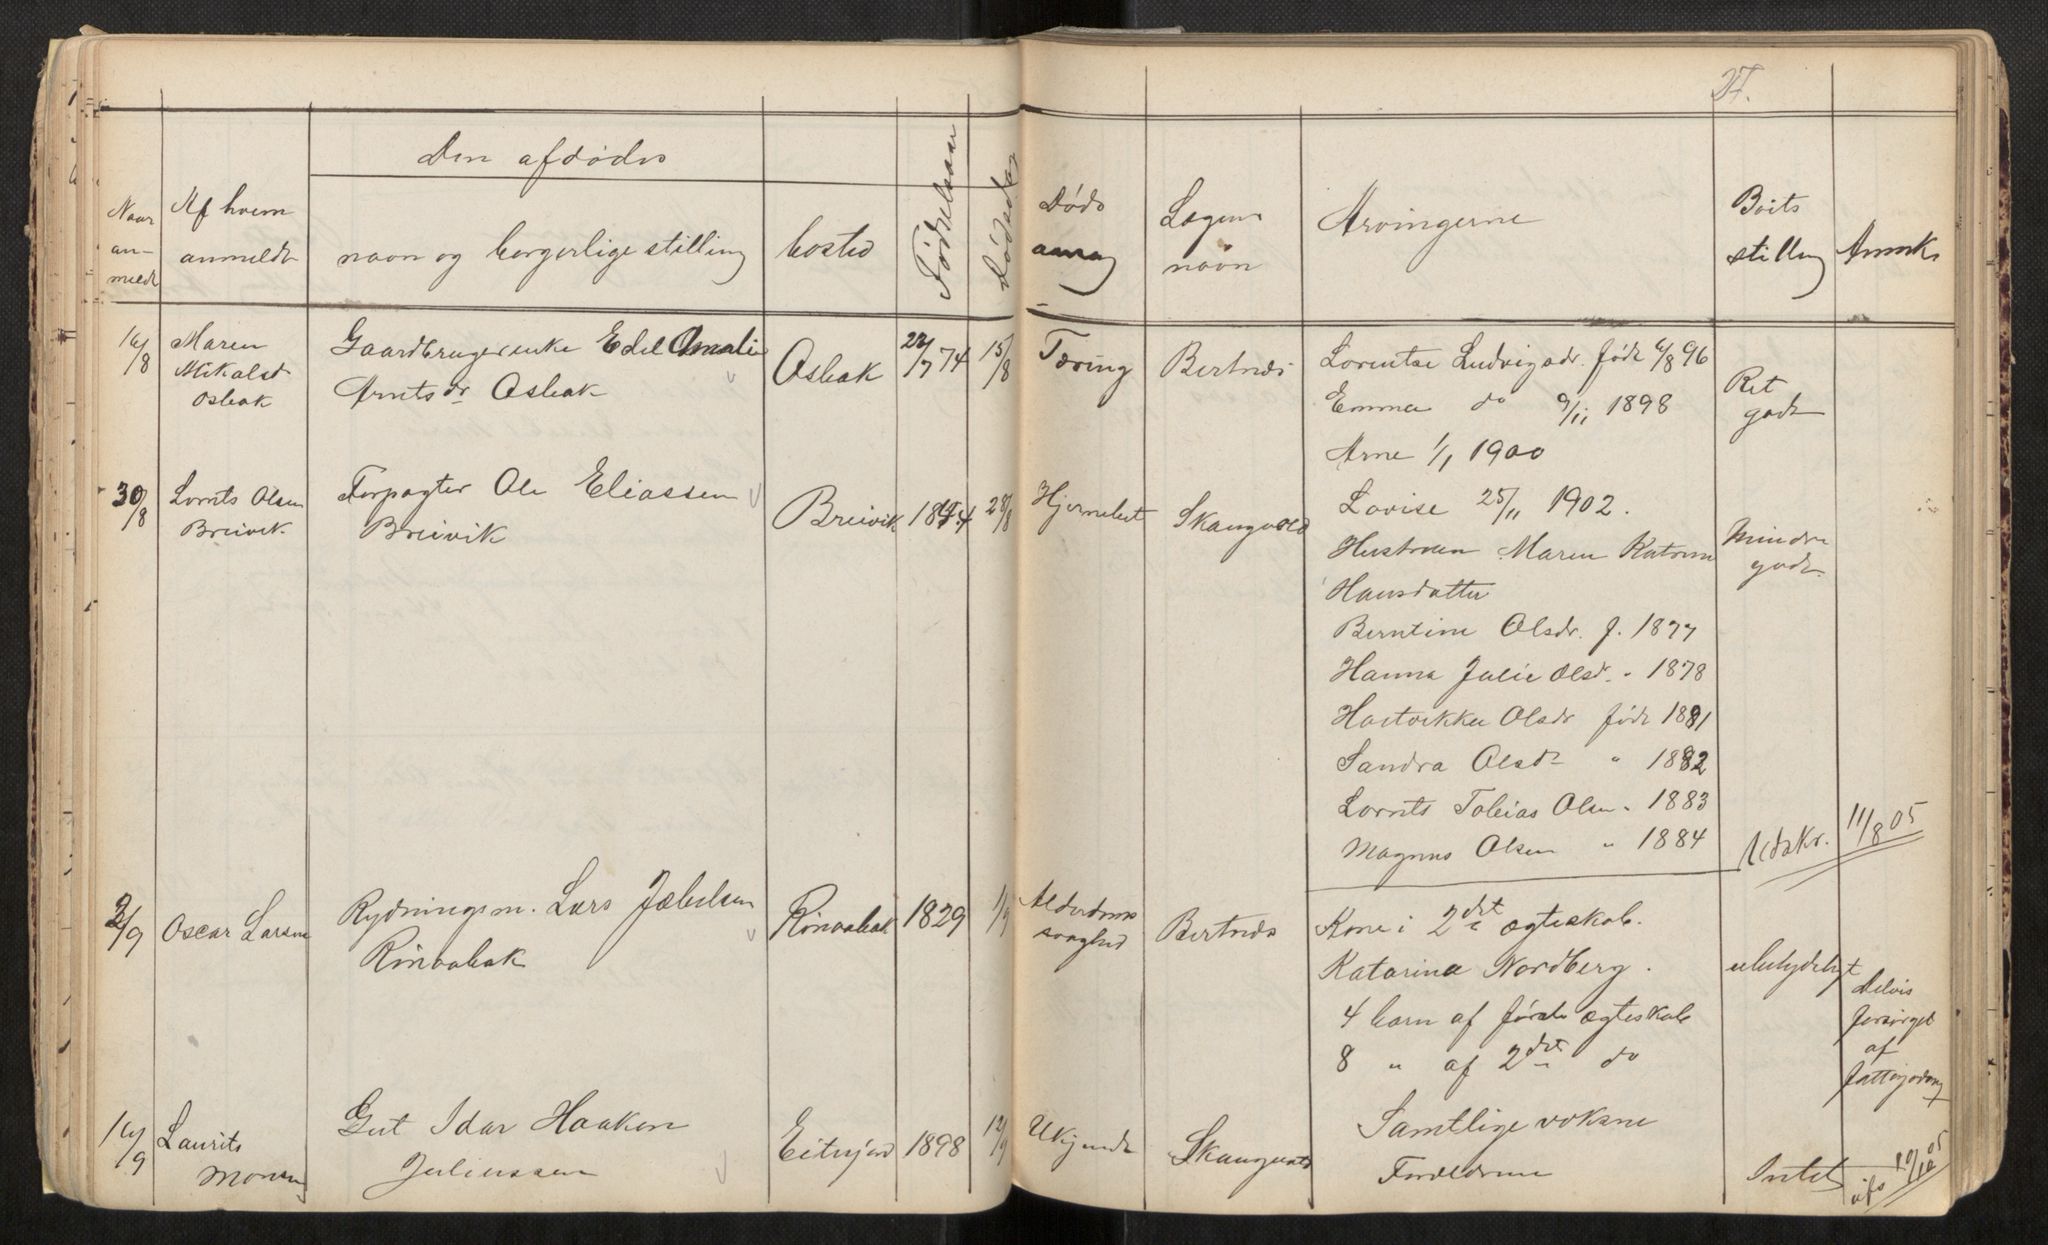 27.
Den afdødes
Naar an-meldt
Af hvem anmeldt
navn og borgerlige stilling
bosted
Fødselsaar
Dødsdag
Døds aarsag
Sogne navn
Arvingerne
Boets stilling
Anmrk
16/8
Maren Mikalsd Osbak
Gaardbrugerenke Edel Amalie
Arntsdr Osbak
Osbak
22/7 74
15/8
Tæring
Bertnæs
Lorentse Ludvigsdr. født 6/8 96
Emma do 9/11 1898
Arne 1/1 1900
Lovise 25/11 1902.
Ret godt
30/8
Lornts Olsen Breivik
Forpagter Ole Eliassen
Breivik
Breivik
1844
28/8
Skaugvold
Hustruen Maren Katrine
Hansdatter
Berntine Olsdr. f. 1877
Hanna Julie Olsdr. " 1878
Hartvikka Olsdr født 1881
Sandra Olsdr " 1882
Lornts Tobias Olsen " 1883
Magnus Olsen " 1884
Mindre godt.
Udskr. 11/8 05
2/9
Oscar Larsen
Rydningsm. Lars Jakobsen
1829
1/9
Alderdoms svaghed
Bertnæs
Kone i 2det ægteskab.
Katarina Nordberg.
4 barn af første ægteskab
8 " af 2det do
Samtlige voksne
ubetydeligt
Delvis forsørget af fattigvæsnet
16/9
Laurits Monsen
Gut Idar Haakon
Juliussen
1898
12/9
Ukjendt
Forældrene
Intet
10/10 05